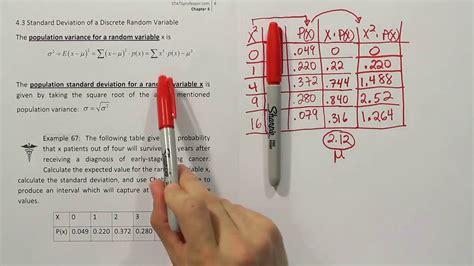 STATSprofessor.com
Chapter 4
4.3 Standard Deviation of a Discrete Random Variable
The population variance for a random variable x is
σ² = E(x − μ)² = Σ(x − μ)² · p(x) = Σ x² · p(x) − μ²
The population standard deviation for a random variable x is
given by taking the square root of the mentioned
population variance: σ = √σ²
Example 67: The following table give probability
that x patients out of four will survive years after
receiving a diagnosis of early-stage cancer.
Calculate the expected value for the random variable x,
calculate the standard deviation, and use
produce an interval which will capture at
X 0 1 2 3
P(x) 0.049 0.220 0.372 0.280
x² P(x) x·P(x) x²·P(x)
0 .049 0 0
1 .220 .22 .220
4 .372 .744 1.488
9 .280 .840 2.52
16 .079 .316 1.264
2.12
μ
Sharpie